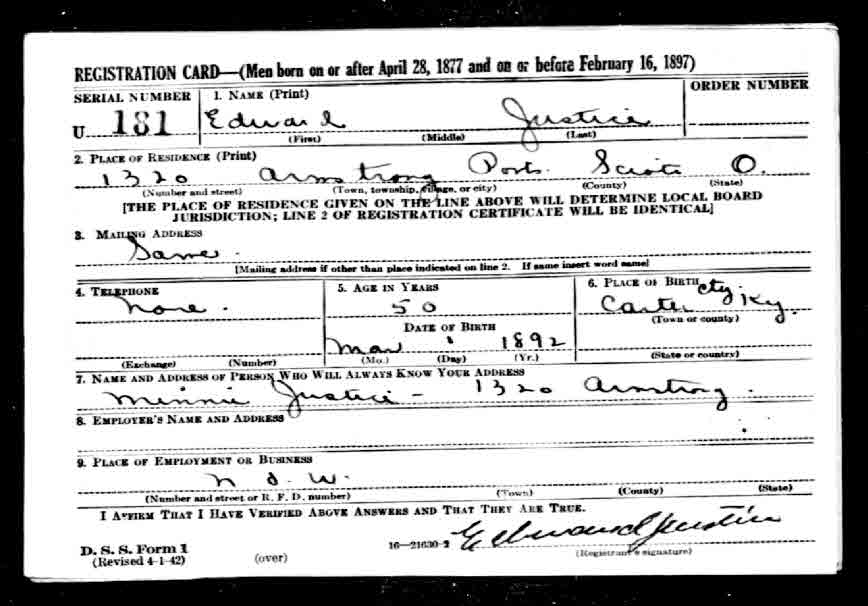 REGISTRATION CARD—(Men born on or after April 28, 1877 and on or before February 16, 1897)
SERIAL NUMBER 1. NAME (Print) ORDER NUMBER
U 181 Edward Justice
(First) (Middle) (Last)
2. PLACE OF RESIDENCE (Print)
1320 Armstrong Ports. Scioto O.
(Number and street) (Town, township, village, or city) (County) (State)
[THE PLACE OF RESIDENCE GIVEN ON THE LINE ABOVE WILL DETERMINE LOCAL BOARD
JURISDICTION; LINE 2 OF REGISTRATION CERTIFICATE WILL BE IDENTICAL]
3. MAILING ADDRESS
Same
[Mailing address if other than place indicated on line 2. If same insert word same]
4. TELEPHONE 5. AGE IN YEARS 6. PLACE OF BIRTH
None. 50 Carter Cty. Ky.
DATE OF BIRTH (Town or county)
Mar 1892
(Exchange) (Number) (Mo.) (Day) (Yr.) (State or country)
7. NAME AND ADDRESS OF PERSON WHO WILL ALWAYS KNOW YOUR ADDRESS
Minnie Justice - 1320 Armstrong.
8. EMPLOYER'S NAME AND ADDRESS
9. PLACE OF EMPLOYMENT OR BUSINESS
(Number and street or R. F. D. number) (Town) (County) (State)
I AFFIRM THAT I HAVE VERIFIED ABOVE ANSWERS AND THAT THEY ARE TRUE.
D. S. S. Form 1 16—21630-2 Edward Justice
(Revised 4-1-42) (over) (Registrant's signature)